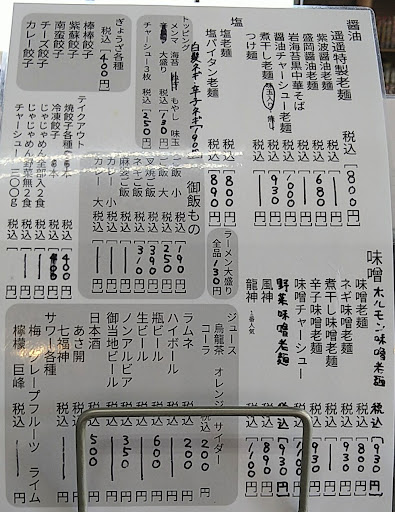 醤油
逍遥特製老麺 税込 800円
紫波醤油老麺 税込
盛岡醤油老麺 税込 680円
岩海苔黒中華そば 税込
醤油チャーシュー老麺 税込 1000円
煮干し老麺 税込 930円
つけ麺 税込 円
塩
塩老麺 税込 800円
塩パイタン老麺 税込 800円
トッピング
白髪ネギ・辛子ネギ 190円
メンマ 海苔 もやし 味玉
大盛り 税込 130円
チャーシュー3枚 税込 250円
ぎょうざ各種
税込 400円
棒棒餃子
紫蘇餃子
南蛮餃子
チーズ餃子
カレー餃子
味噌
ホルモン味噌老麺 税込 930円
味噌老麺 税込 800円
ネギ味噌老麺 税込 930円
煮干し味噌老麺 税込
辛子味噌老麺 税込 930円
味噌チャーシュー 税込
野菜味噌老麺 税込 930円
風神 税込 890円
龍神 1番人気 税込
ラーメン大盛り
全品 130円
御飯もの
ご飯 小 税込 190円
ご飯 大 税込 250円
叉焼ご飯 税込 390円
ネギご飯 税込 310円
麻婆ご飯 税込 円
カレー 小 税込 円
カレー 大 税込 円
テイクアウト
焼餃子各種 税込 400円
冷凍餃子 税込
じゃじゃめん全部入2食 税込 円
じゃじゃめん野菜無2食 税込 円
チャーシュー300g 税込 円
ジュース
烏龍茶 オレンジ サイダー
コーラ 税込 200円
ラムネ 税込 200円
ハイボール 税込 円
瓶ビール 税込 600円
生ビール 税込 円
ノンアルビア 税込 350円
御当地ビール 税込 円
日本酒 税込 500円
あさ開 税込 円
七福神 税込 円
サワー各種 税込 円
梅 グレープフルーツ ライム
檸檬 巨峰